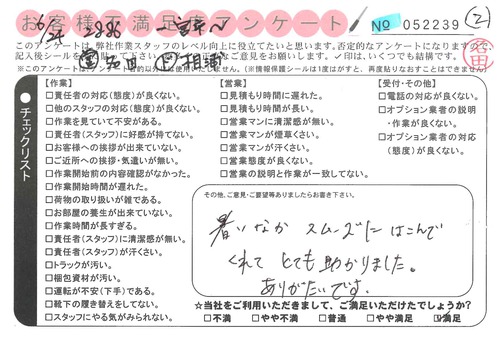 お客様満足度アンケート
6/24
№ 052239
このアンケートは、弊社作業スタッフのレベル向上に役立てたいと思います。否定的なアンケートになりますので、
※このアンケートは
(※情報保護シールは1度はがすと、再度貼りなおすことはできません)
チェックリスト
【作業】
□責任者の対応(態度)が良くない。
□他のスタッフの対応(態度)が良くない。
□作業を見ていて不安がある。
□責任者(スタッフ)に好感が持てない。
□お客様への挨拶が出来ていない。
□ご近所への挨拶・気遣いが無い。
□作業開始前の内容確認がなかった。
□作業開始時間が遅れた。
□荷物の取り扱いが雑である。
□お部屋の養生が出来ていない。
□作業時間が長すぎる。
□責任者(スタッフ)に清潔感が無い。
□責任者(スタッフ)が汗くさい。
□トラックが汚い。
□梱包資材が汚い。
□運転が不安(下手)である。
□靴下の履き替えをしてない。
□スタッフにやる気がみられない。
【営業】
□見積もり時間に遅れた。
□見積もり時間が長い。
□営業マンに清潔感が無い。
□営業マンが煙草くさい。
□営業マンが汗くさい。
□営業態度が良くない。
□営業の説明と作業が一致してない。
【受付・その他】
□電話の対応が良くない。
□オプション業者の説明
・作業が良くない。
□オプション業者の対応
(態度)が良くない。
その他、ご意見・ご要望等ありましたらお書き下さい。
暑いなか スムーズに はこんで
くれて とても助かりました。
ありがたいです。
☆当社をご利用いただきまして、ご満足いただけたでしょうか?
□不満 □やや不満 □普通 □やや満足 ☑満足